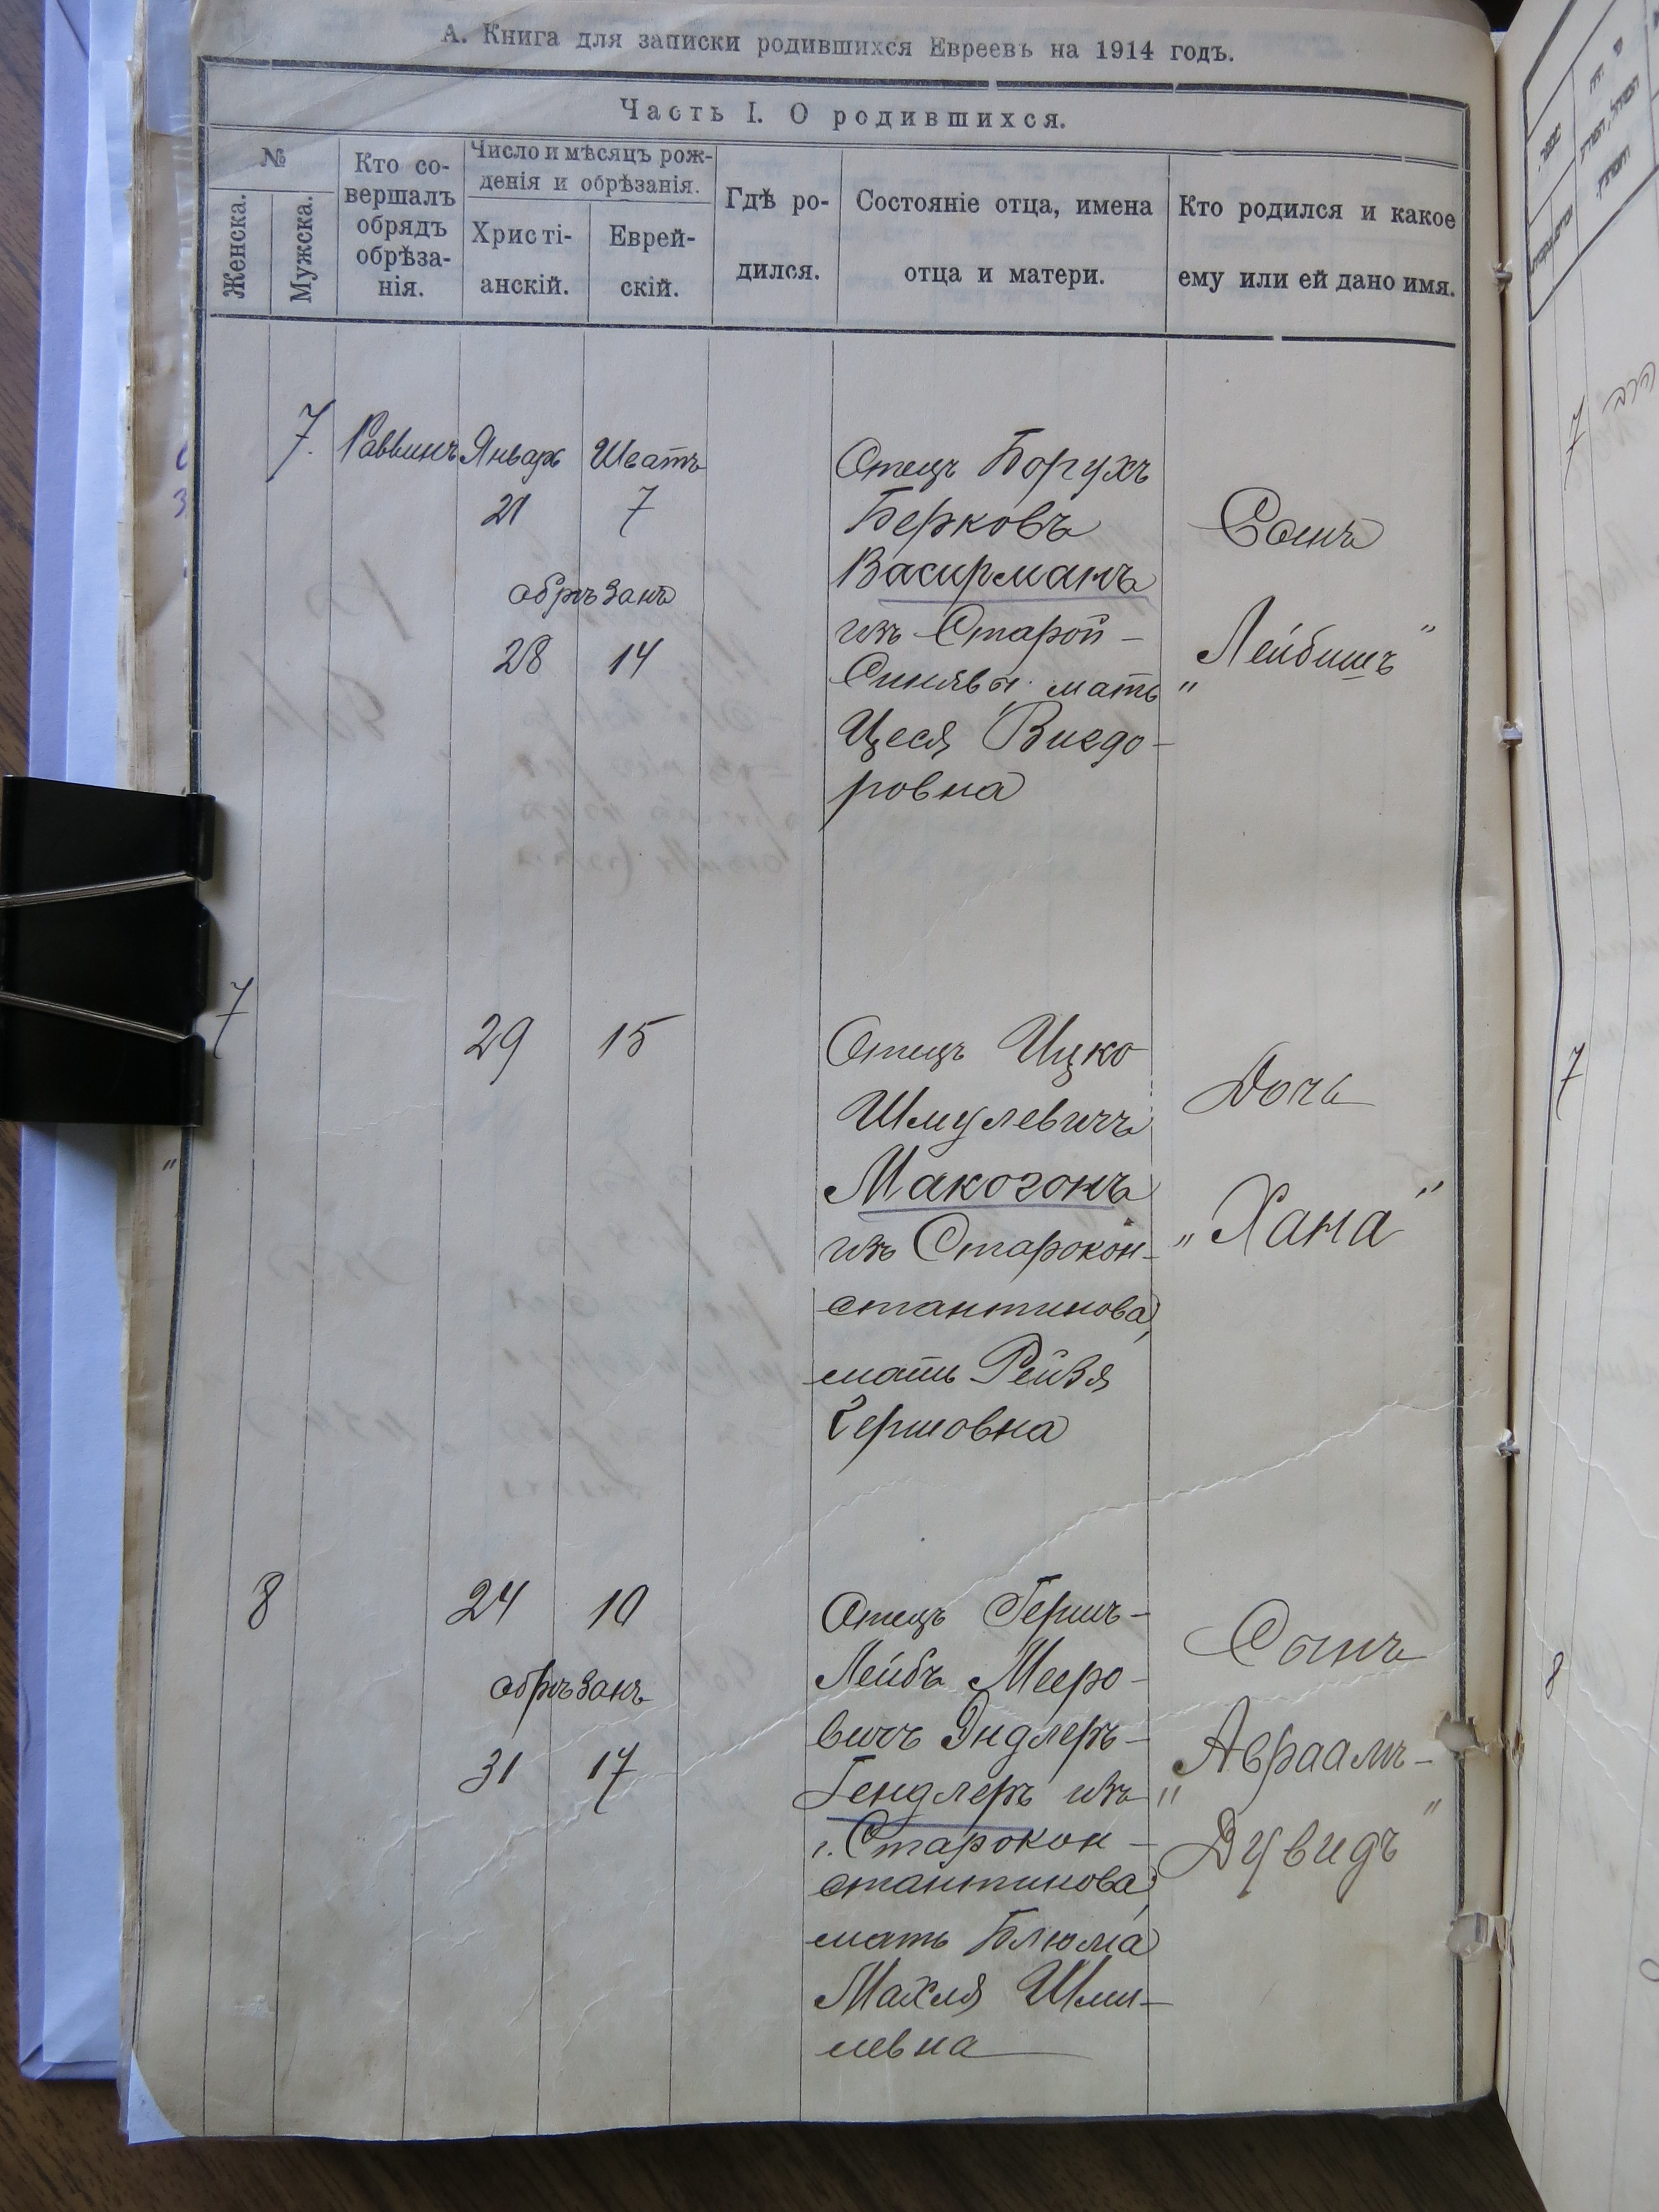 А. Книга для записки родившихся Евреевъ на 1914 годъ.
Часть I. О родившихся.
№
Женска.
Мужска.
Кто со-
вершалъ
обрядъ
обрѣза-
нія.
Число и мѣсяцъ рож-
денія и обрѣзанія.
Христі-
анскій.
Еврей-
скій.
Гдѣ ро-
дился.
Состояніе отца, имена
отца и матери.
Кто родился и какое
ему или ей дано имя.
7. Раввинъ Январь Шватъ
21 7
обрѣзанъ
28 14
Отецъ Борухъ
Берковъ
Васирманъ
изъ Старой-
Синявы мать
Цеся Вигдо-
ровна
Сынъ
„Лейбишъ"
7
29 15
Отецъ Ицко
Шмулевичъ
Макогонъ
изъ Старокон-
стантинова,
мать Рейзя
Гершовна
Дочь
„Хана"
8
24 10
обрѣзанъ
31 17
Отецъ Гершъ-
Лейбъ Мееро-
вичъ Эндлеръ-
Гендлеръ изъ
г. Старокон-
стантинова,
мать Блюма
Махля Шми-
левна
Сынъ
„Авраамъ-
Дувидъ"
7
7
8